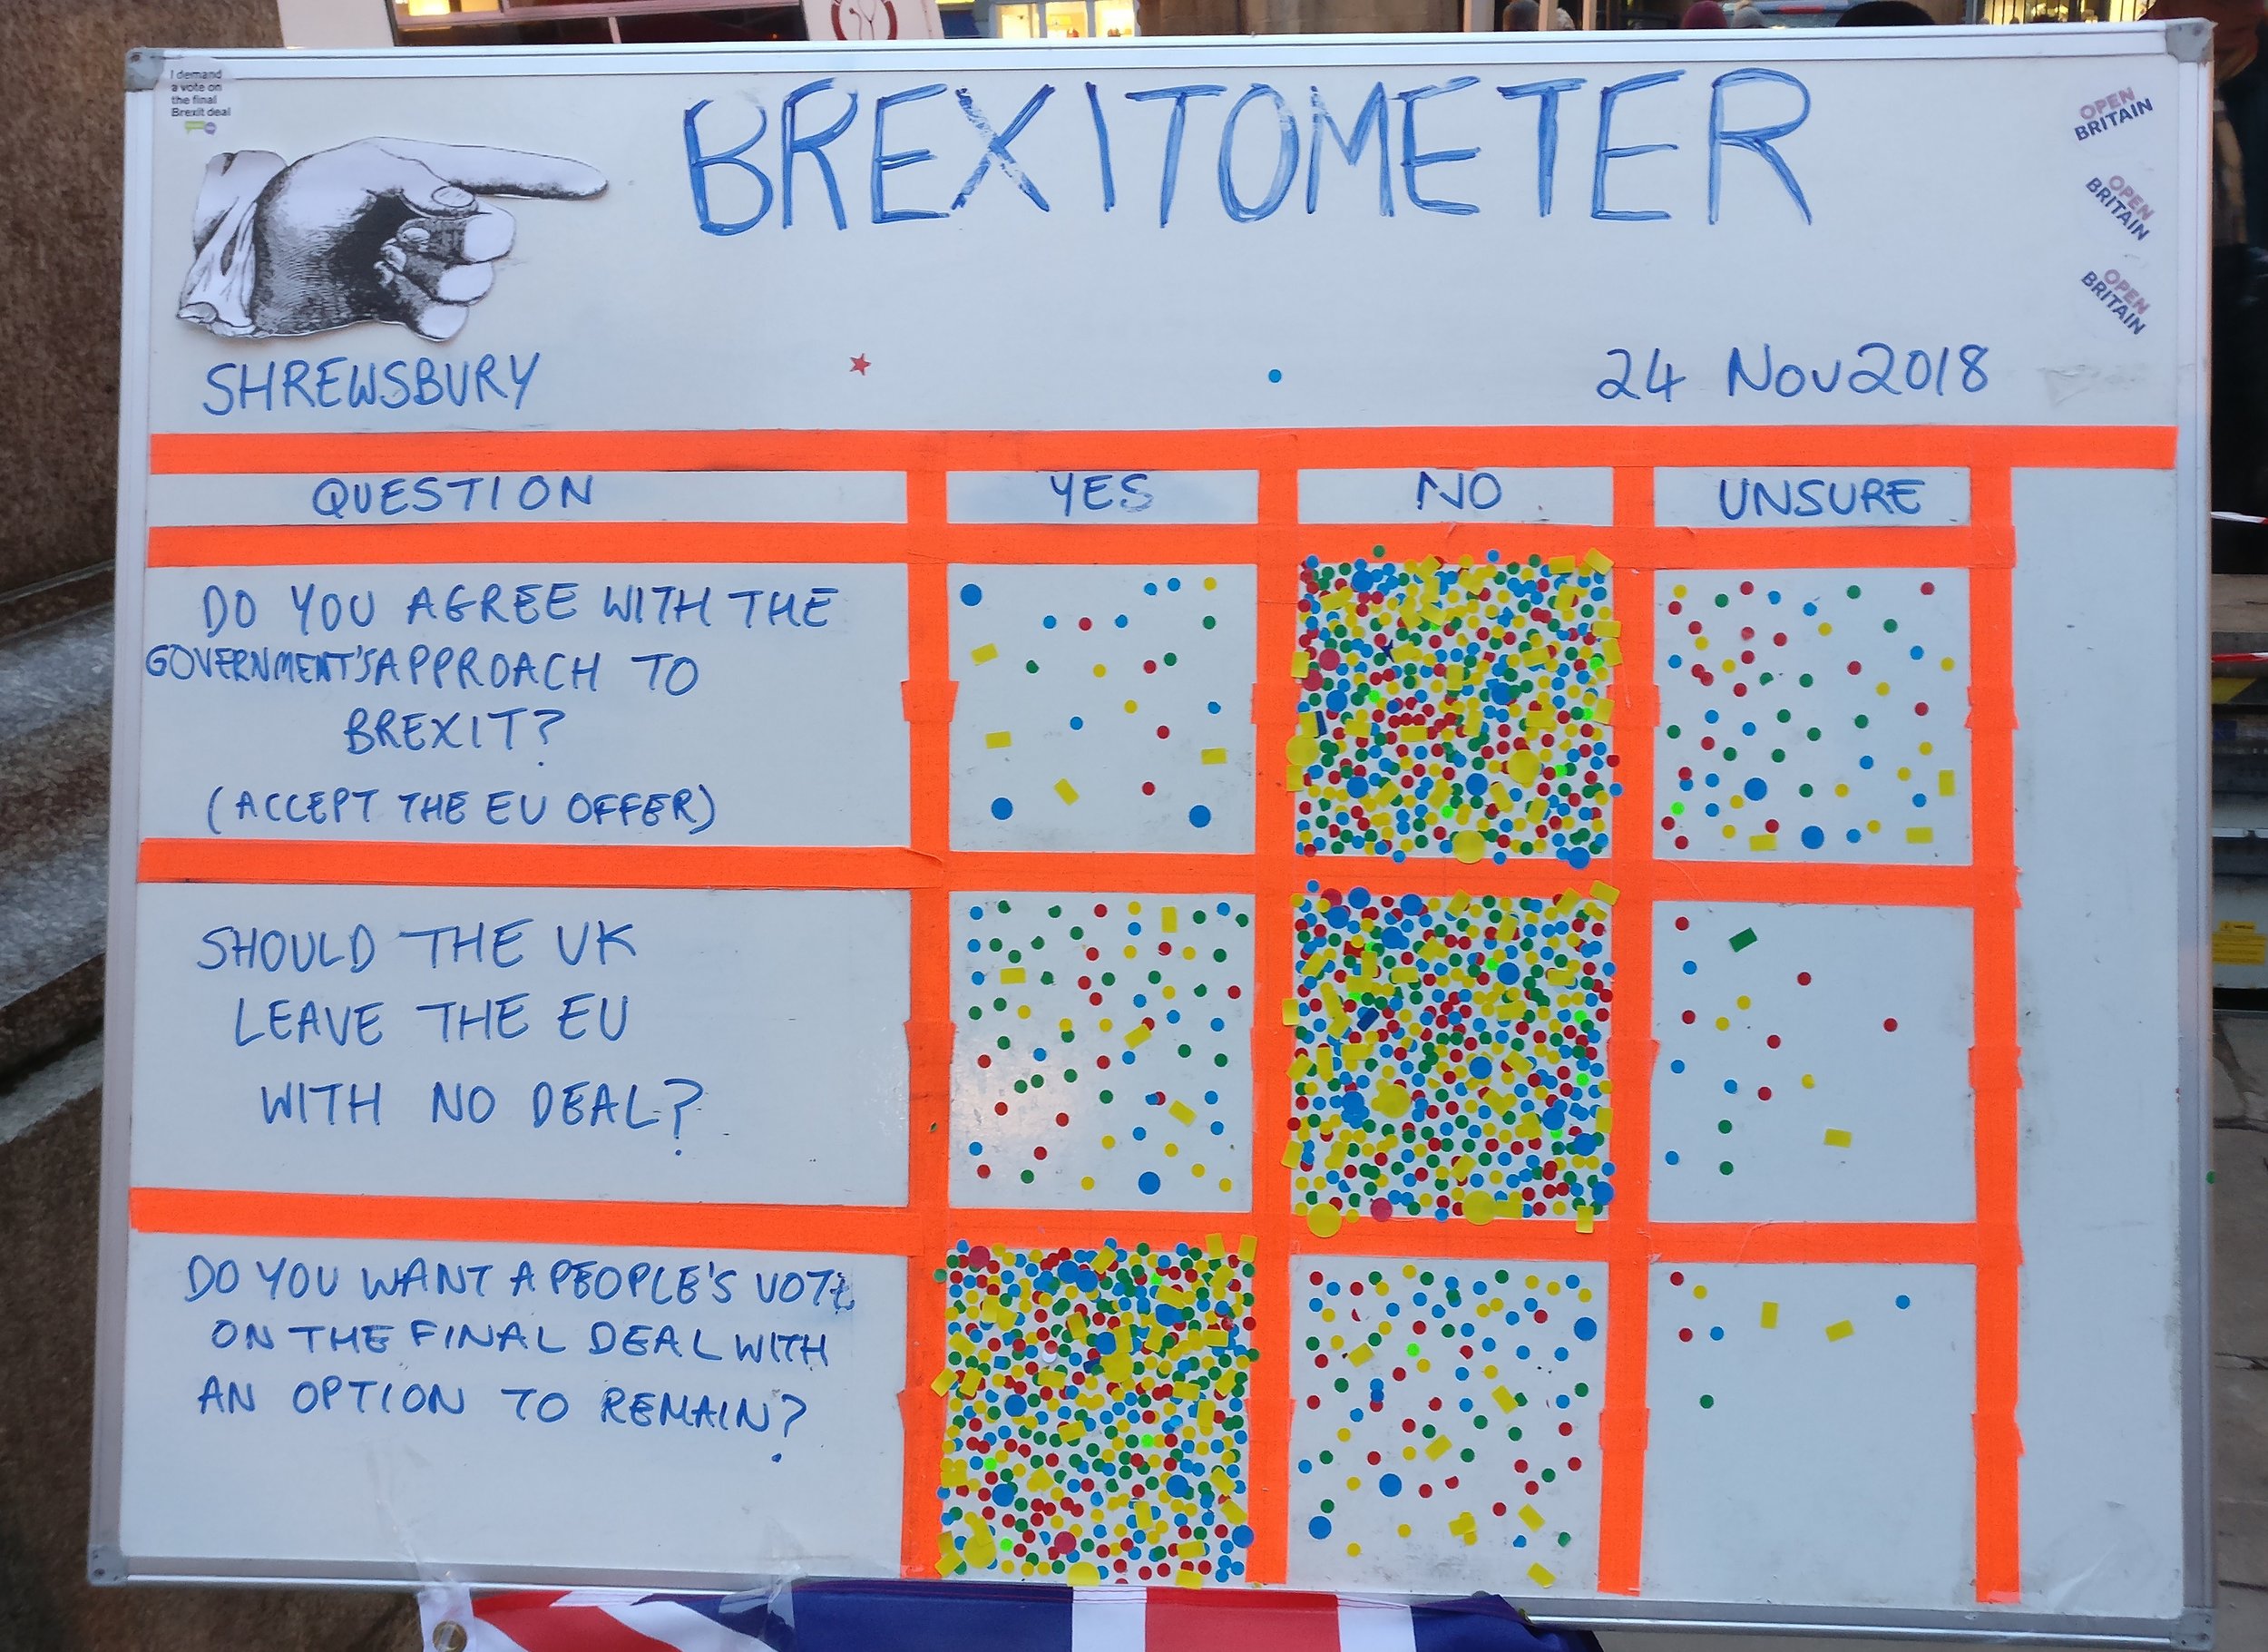 I demand
a vote on
the final
Brexit deal
BREXITOMETER
OPEN
BRITAIN
OPEN
BRITAIN
OPEN
BRITAIN
SHREWSBURY
24 Nov 2018
QUESTION YES NO UNSURE
DO YOU AGREE WITH THE
GOVERNMENT'S APPROACH TO
BREXIT?
(ACCEPT THE EU OFFER)
SHOULD THE UK
LEAVE THE EU
WITH NO DEAL?
DO YOU WANT A PEOPLE'S VOTE
ON THE FINAL DEAL WITH
AN OPTION TO REMAIN?